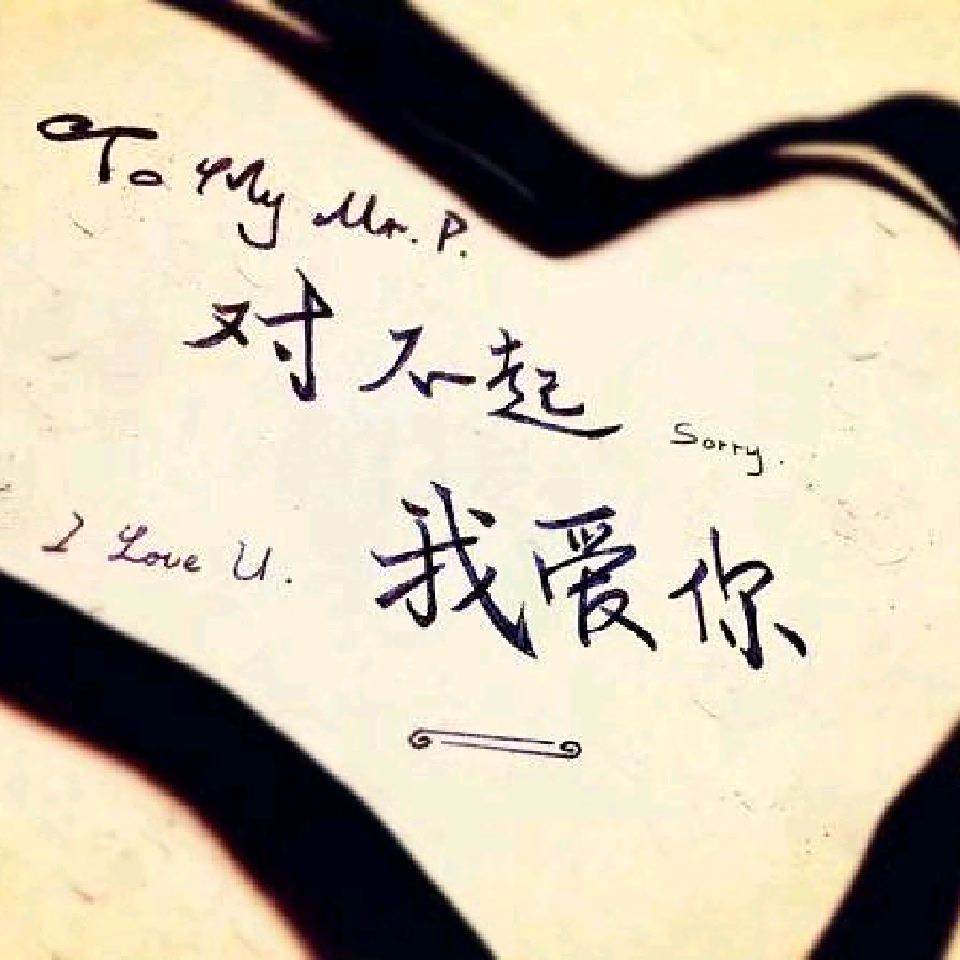 To My Mr. P.
对不起
Sorry.
我爱你
I Love U.